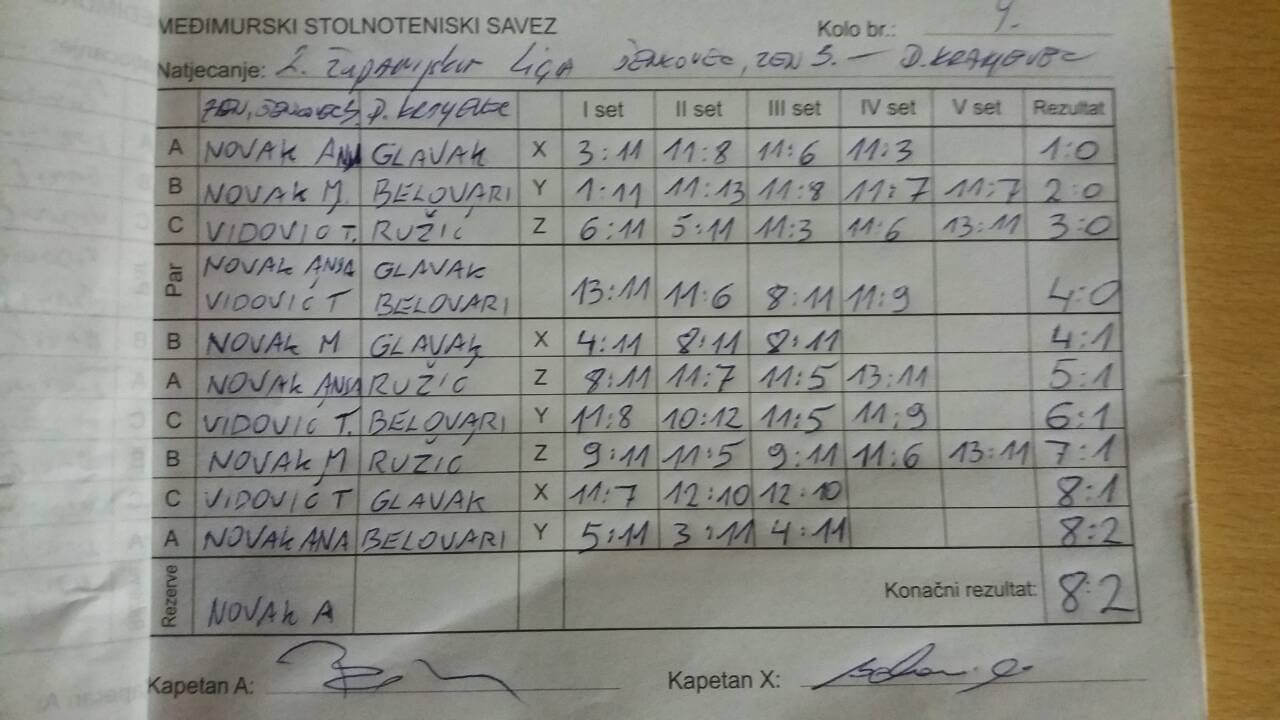 MEĐIMURSKI STOLNOTENISKI SAVEZ
Kolo br.: 9.
Natjecanje: 2. ŽUPANIJSKA LIGA ŠENKOVEC, ŽEN S. — D. KRALJEVEC
ŽEN, ŠENKOVEC D. KRALJEVEC I set II set III set IV set V set Rezultat
A NOVAK ANA GLAVAK X 3:11 11:8 11:6 11:3 1:0
B NOVAK M. BELOVARI Y 1:11 11:13 11:8 11:7 11:7 2:0
C VIDOVIĆ T. RUŽIĆ Z 6:11 5:11 11:3 11:6 13:11 3:0
Par NOVAK GLAVAK
VIDOVIĆ T BELOVARI 13:11 11:6 8:11 11:9 4:0
B NOVAK M GLAVAK X 4:11 8:11 8:11 4:1
A NOVAK RUŽIĆ Z 8:11 11:7 11:5 13:11 5:1
C VIDOVIĆ T. BELOVARI Y 11:8 10:12 11:5 11:9 6:1
B NOVAK M RUŽIĆ Z 9:11 11:5 9:11 11:6 13:11 7:1
C VIDOVIĆ T GLAVAK X 11:7 12:10 12:10 8:1
A NOVAK ANA BELOVARI Y 5:11 3:11 4:11 8:2
Rezerve NOVAK A Konačni rezultat: 8:2
Kapetan A:
Kapetan X: